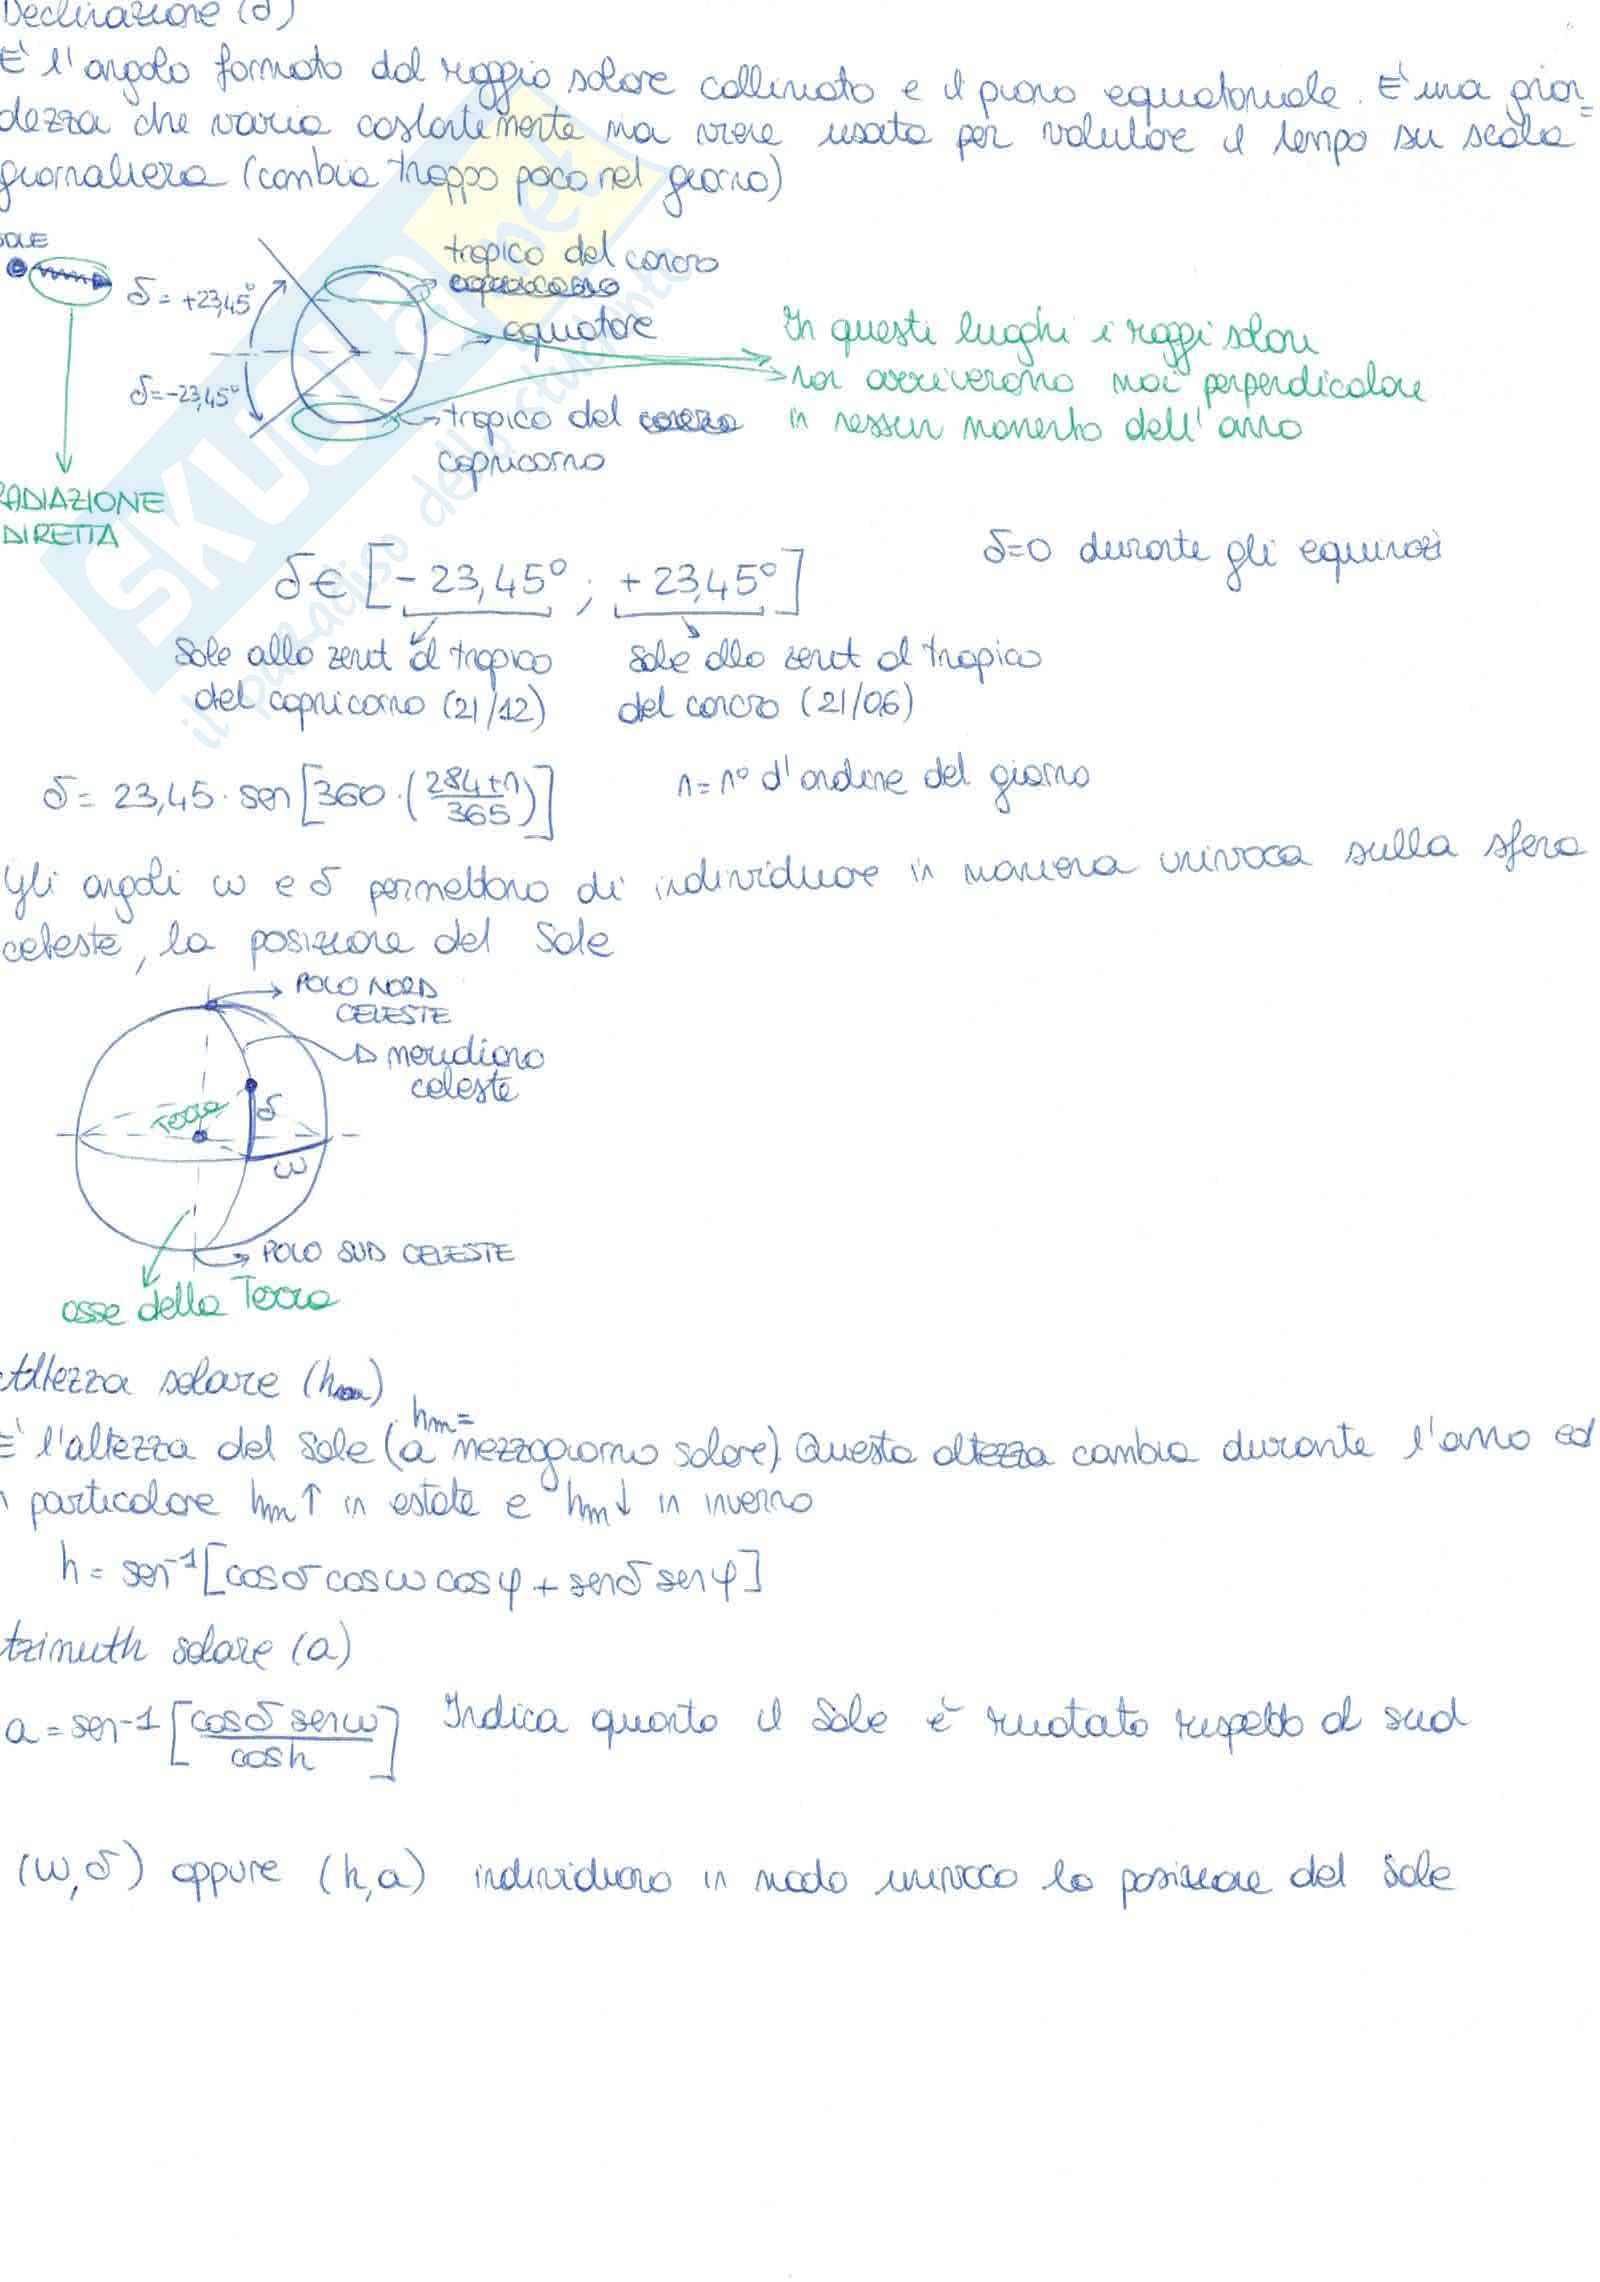 Declinazione (δ)
E' l'angolo formato dal raggio solare collimato e il piano equatoriale. E' una gran=
dezza che varia costantemente ma viene usata per valutare il tempo su scala
giornaliera (cambia troppo poco nel giorno)
SOLE
δ = +23,45°
δ=-23,45°
tropico del cancro
equatore
tropico del
capricorno
In questi luoghi i raggi solari
non arriveranno mai perpendicolare
in nessun momento dell'anno
RADIAZIONE
DIRETTA
δ=0 durante gli equinozi
δ∈ [-23,45° ; +23,45°]
Sole allo zenit al tropico
del capricorno (21/12)
Sole allo zenit al tropico
del cancro (21/06)
δ= 23,45 · sen[360 · (284+n/365)]
n= n° d'ordine del giorno
Gli angoli ω e δ permettono di individuare in maniera univoca sulla sfera
celeste, la posizione del Sole
POLO NORD
CELESTE
meridiano
celeste
Terra
δ
ω
POLO SUD CELESTE
asse della Terra
Altezza solare (h)
hm=
E' l'altezza del Sole (a mezzogiorno solare) Questa altezza cambia durante l'anno ed
in particolare hm↑ in estate e hm↓ in inverno
h= sen⁻¹[cosδ cosω cosφ + senδ senφ]
Azimuth solare (a)
a = sen⁻¹ [cosδ senω/cosh] Indica quanto il Sole è ruotato rispetto al sud
(ω,δ) oppure (h,a) individuano in modo univoco la posizione del Sole
SKUOLA.net
il paradiso dello studente